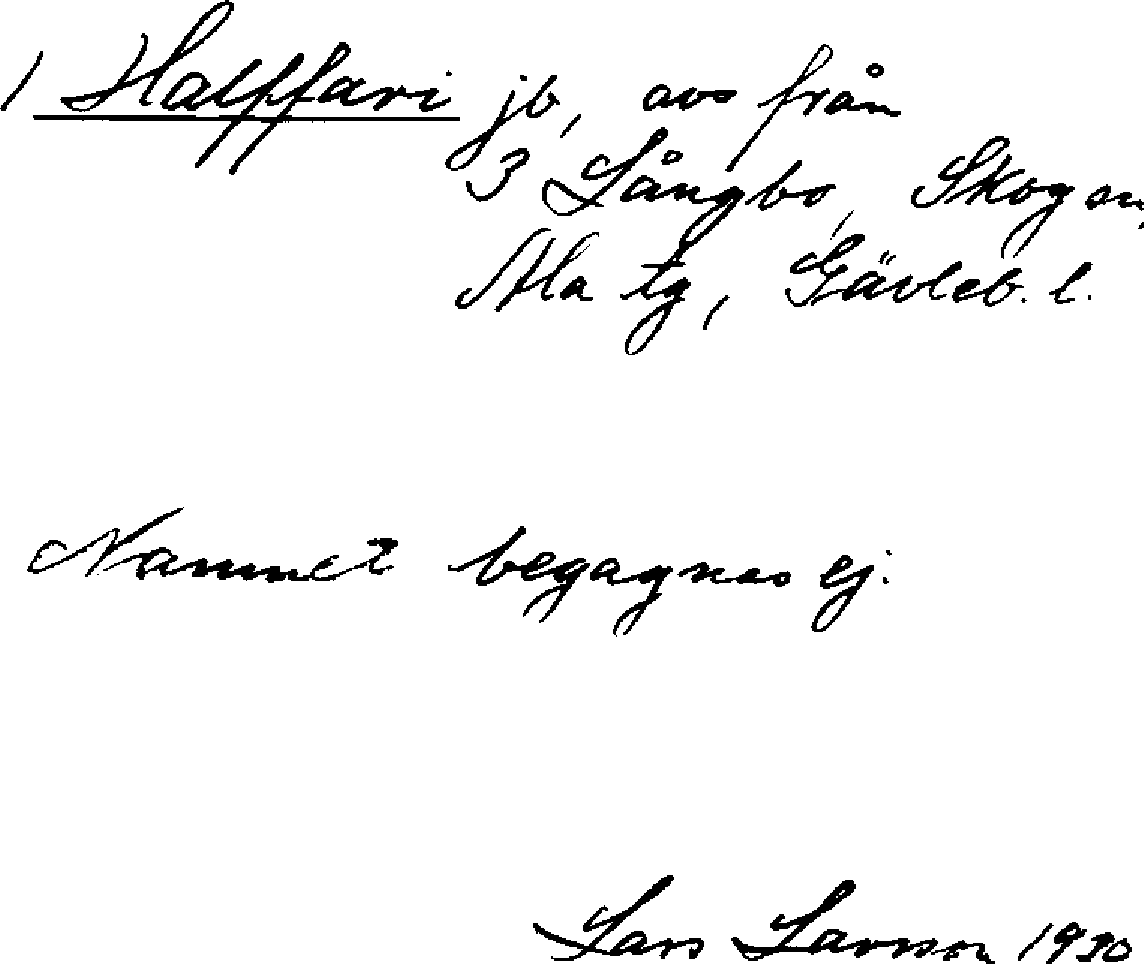 1 Halffari jb, avs från
3 Långbo, Skog sn,
Ala tg, Gävleb. l.
Namnet begagnas ej.
Lars Larsson 1930